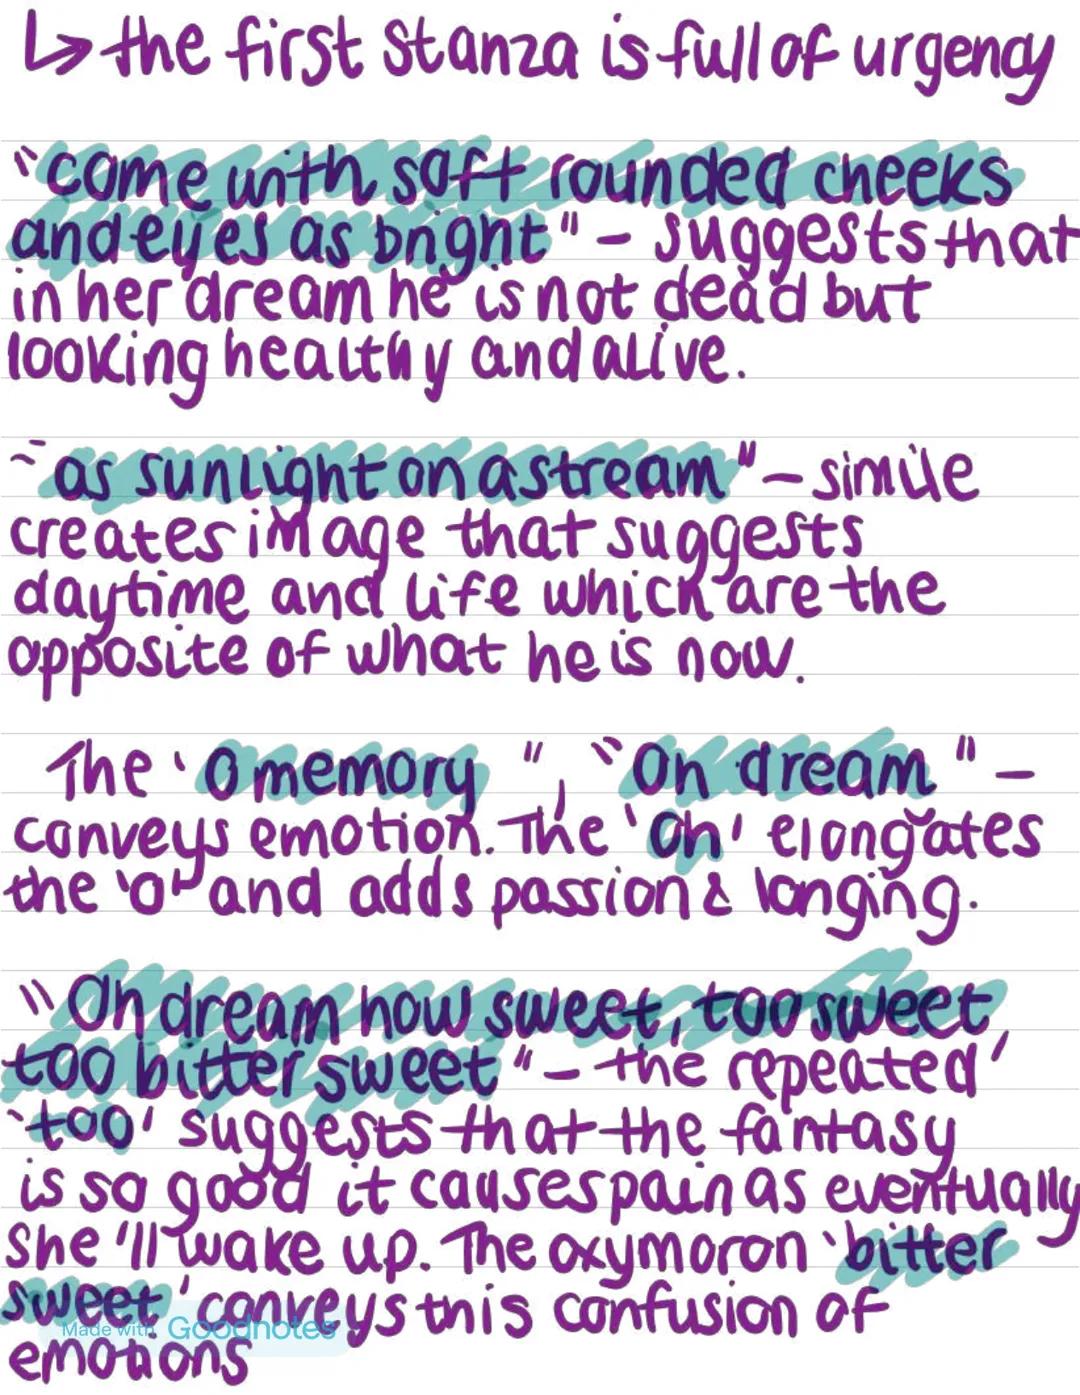 ↳ the first stanza is full of urgency
"come with soft rounded cheeks
and eyes as bright" – suggests that
in her dream he is not dead but
looking healthy and alive.
"as sunlight on a stream" – simile
creates image that suggests
daytime and life which are the
opposite of what he is now.
The 'O memory", "Oh dream" –
conveys emotion. The 'Oh' elongates
the 'O' and adds passion & longing.
"Oh dream how sweet, too sweet,
too bitter sweet" – the repeated
'too' suggests that the fantasy
is so good it causes pain as eventually
she'll wake up. The oxymoron 'bitter
sweet' conveys this confusion of
Made with Goodnotes
emotions